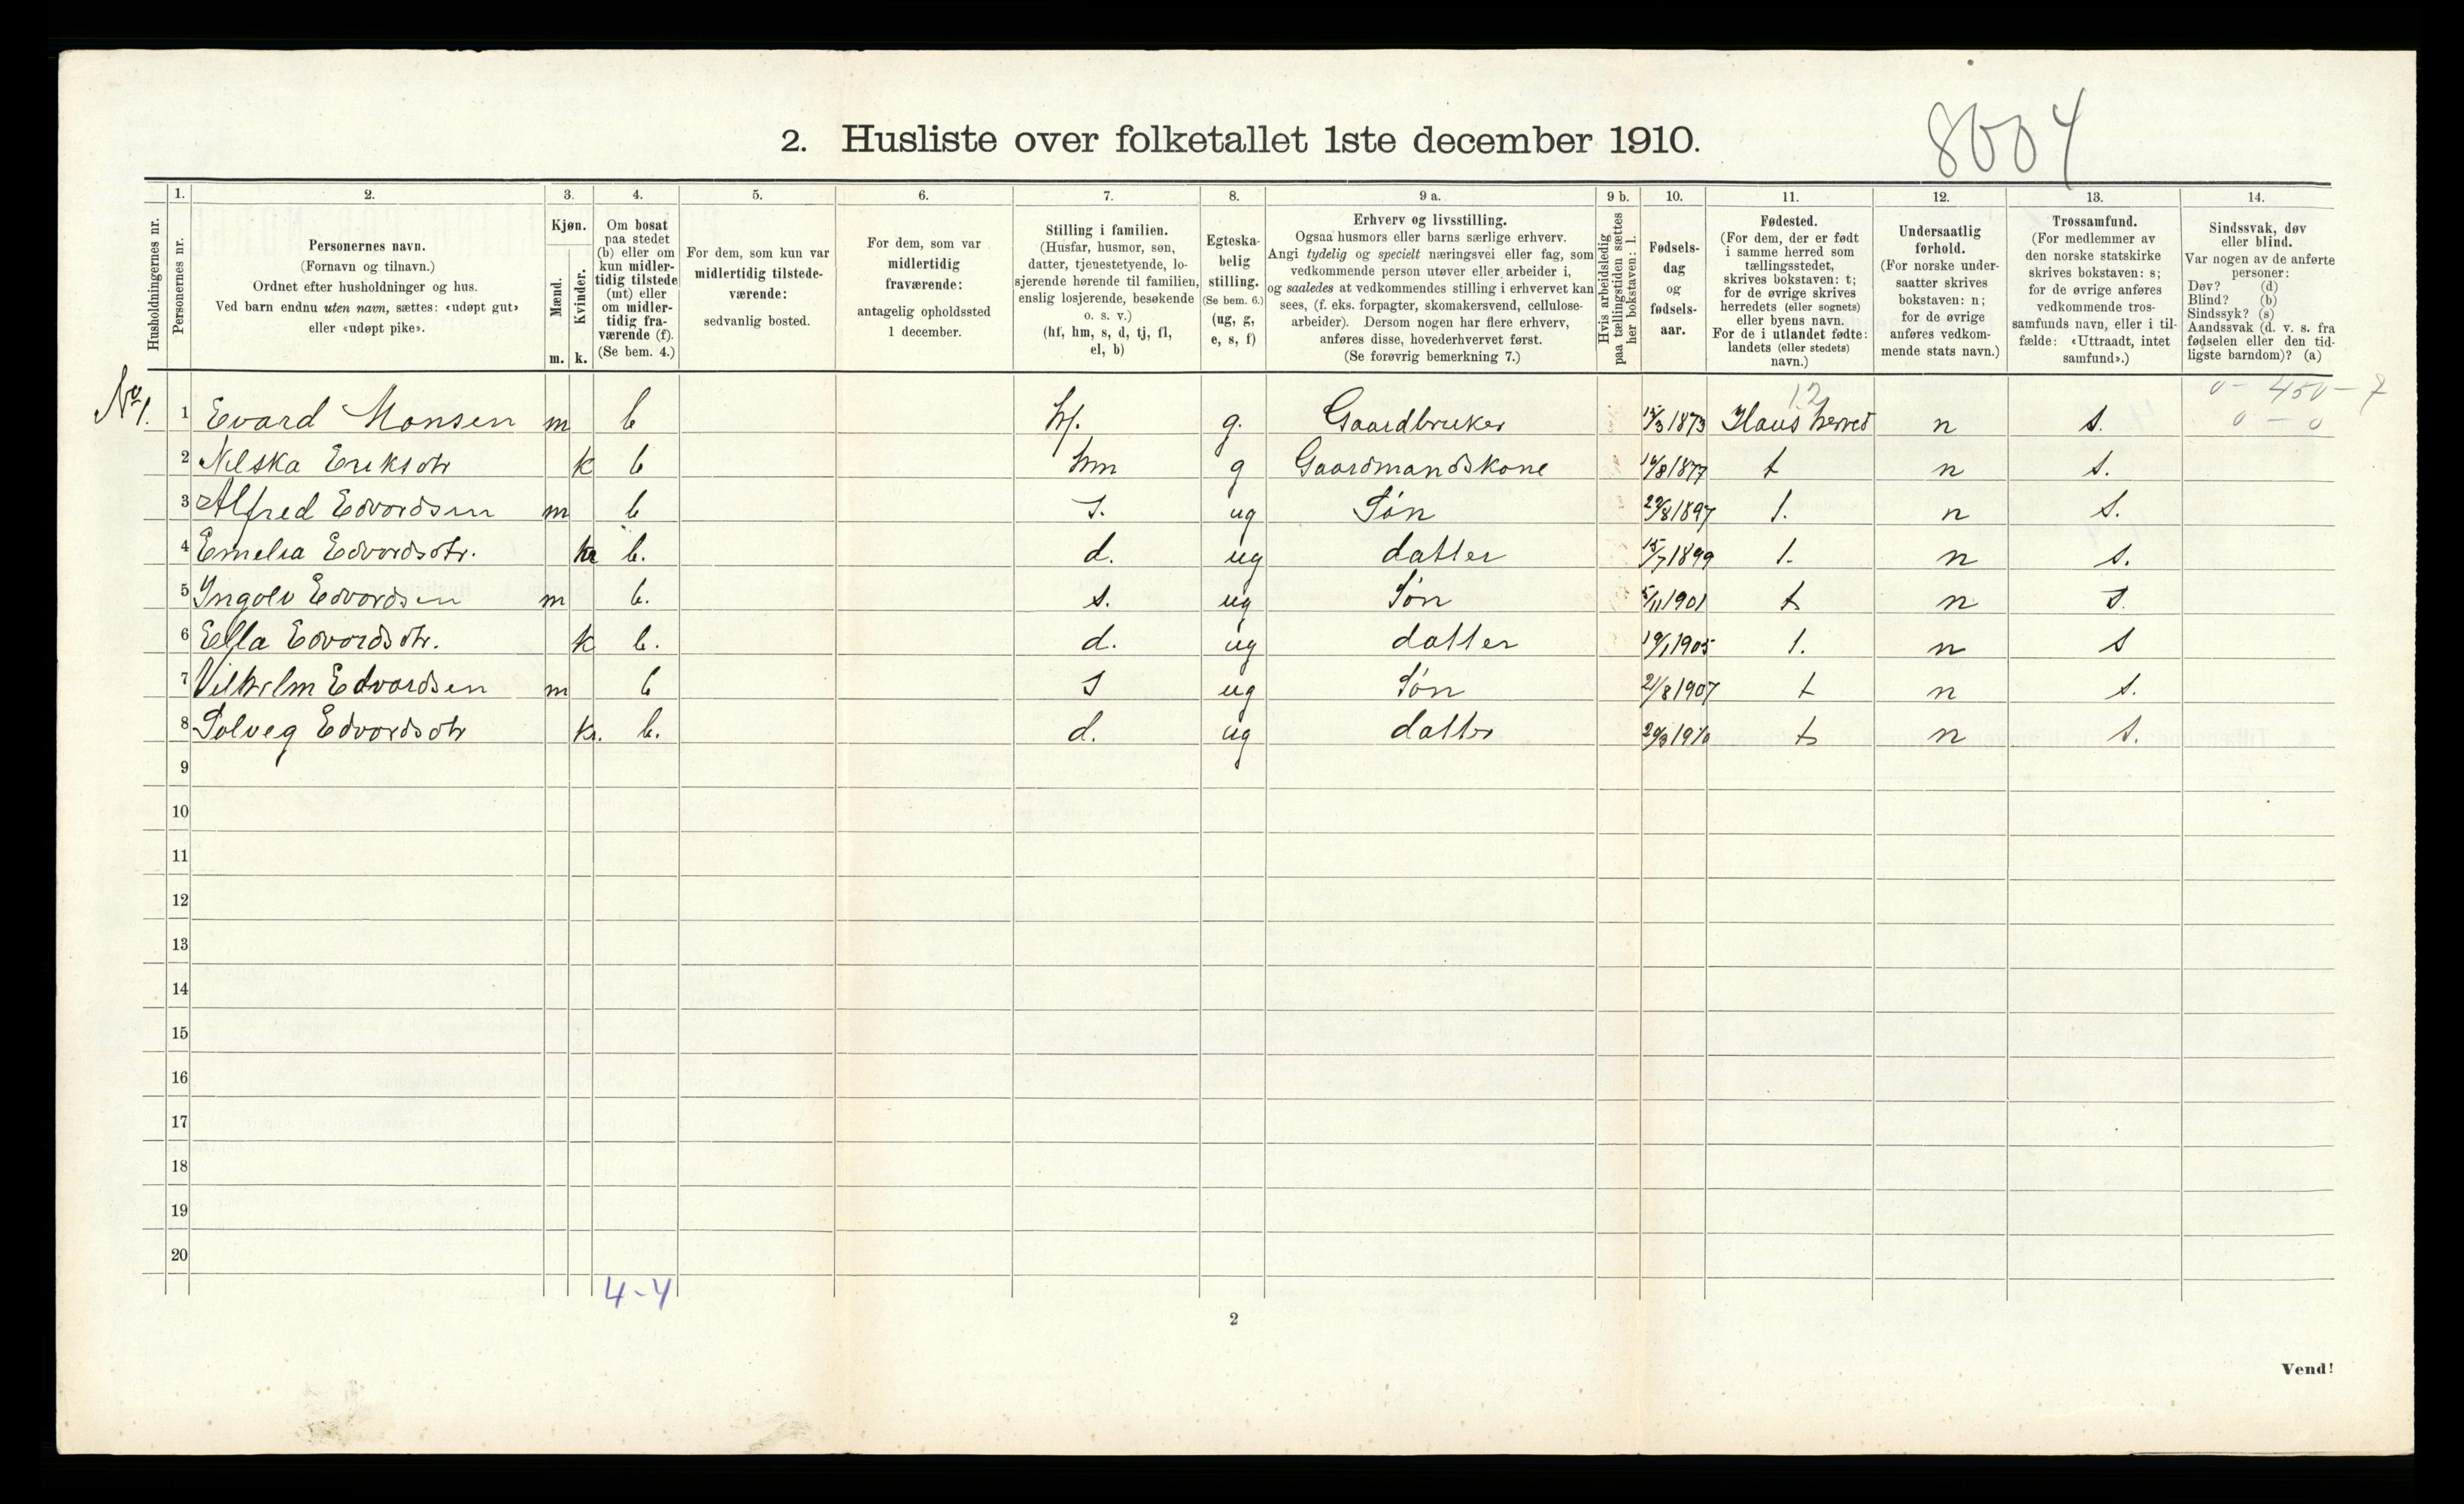 8004
2. Husliste over folketallet 1ste december 1910.
Husholdningernes nr.
1.
Personernes nr.
2.
Personernes navn.
(Fornavn og tilnavn.)
Ordnet efter husholdninger og hus.
Ved barn endnu uten navn, sættes: «udøpt gut»
eller «udøpt pike».
3.
Kjøn.
Mænd.
Kvinder.
m. k.
4.
Om bosat
paa stedet
(b) eller om
kun midler-
tidig tilstede
(mt) eller
om midler-
tidig fra-
værende (f).
(Se bem. 4.)
5.
For dem, som kun var
midlertidig tilstede-
værende:
sedvanlig bosted.
6.
For dem, som var
midlertidig
fraværende:
antagelig opholdssted
1 december.
7.
Stilling i familien.
(Husfar, husmor, søn,
datter, tjenestetyende, lo-
sjerende hørende til familien,
enslig losjerende, besøkende
o. s. v.)
(hf, hm, s, d, tj, fl,
el, b)
8.
Egteska-
belig
stilling.
(Se bem. 6.)
(ug, g,
e, s, f)
9 a.
Erhverv og livsstilling.
Ogsaa husmors eller barns særlige erhverv.
Angi tydelig og specielt næringsvei eller fag, som
vedkommende person utøver eller arbeider i,
og saaledes at vedkommendes stilling i erhvervet kan
sees, (f. eks. forpagter, skomakersvend, cellulose-
arbeider). Dersom nogen har flere erhverv,
anføres disse, hovederhvervet først.
(Se forøvrig bemerkning 7.)
9 b.
Hvis arbeidsledig
paa tællingstiden sættes
her bokstaven: l.
10.
Fødsels-
dag
og
fødsels-
aar.
11.
Fødested.
(For dem, der er født
i samme herred som
tællingsstedet,
skrives bokstaven: t;
for de øvrige skrives
herredets (eller sognets)
eller byens navn.
For de i utlandet fødte:
landets (eller stedets)
navn.)
12.
Undersaatlig
forhold.
(For norske under-
saatter skrives
bokstaven: n;
for de øvrige
anføres vedkom-
mende stats navn.)
13.
Trossamfund.
(For medlemmer av
den norske statskirke
skrives bokstaven: s;
for de øvrige anføres
vedkommende tros-
samfunds navn, eller i til-
fælde: «Uttraadt, intet
samfund».)
14.
Sindssvak, døv
eller blind.
Var nogen av de anførte
personer:
Døv? (d)
Blind? (b)
Sindssyk? (s)
Aandssvak (d. v. s. fra
fødselen eller den tid-
ligste barndom)? (a)
12 0 - 450 - 7
No 1. 1 Evard Monsen m b hf. g. Gaardbruker 15/3 1873 Haus herred n s. 0 - 0
2 Nilska Eriksdtr k b hm g Gaardmandskone 1877 t n s.
3 Alfred Edvardsen m b s. ug Søn 29/8 1897 t. n s.
4 Emelia Edvardsdtr. k b. d. ug datter 15/7 1899 t. n s.
5 Ingolv Edvardsen m b. s. ug Søn 5/11 1901 t n s.
6 Ella Edvardsdtr. k b. d. ug datter 19/1 1905 t. n s
7 Vilhelm Edvardsen m b s ug Søn 21/8 1907 t n s.
8 Solveg Edvardsdtr k. b. d. ug datter 1910 t n s.
9
10
11
12
13
14
15
16
17
18
19
20
4-4
2
Vend!